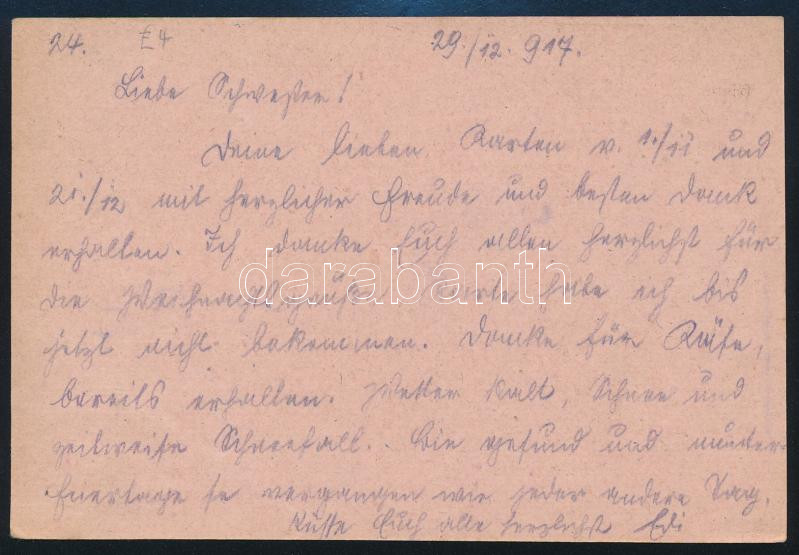 24. E4 29./12. 917.
Liebe Schwester!
Deine lieben Karten v. 1./11 und
21./12 mit herzlicher Freude und besten Dank
erhalten. Ich danke Euch allen herzlichst für
die Karte habe ich bis
darabanth
jetzt nicht bekommen. Danke für
bereits erhalten. Wetter kalt, Schnee und
zeitweise Schneefall. Bin gesund und munter
Feiertage so vergangen wie jeder andere Tag.
Küsse Euch alle herzlichst Edi